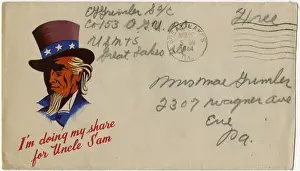 C H Grimler S 2/c
Co 153 O.G.U.
U.S.N.T.S
Great Lakes
Free
ILL.
Miss Mae Grimler
2307 Wagner Ave
Erie
Pa.
I'm doing my share
for Uncle Sam